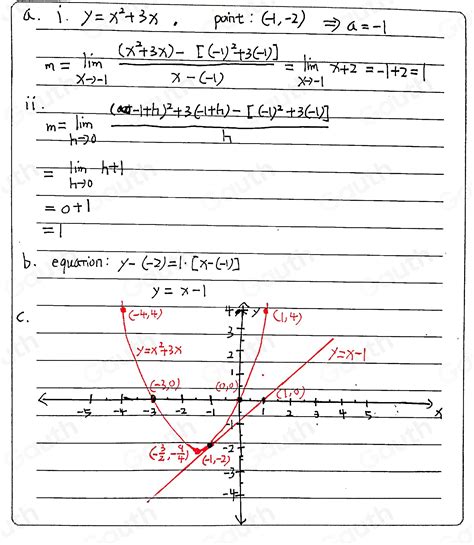 a. i. y = x²+3x . point : (-1,-2) ⇒ a = -1
m = lim x→-1 (x²+3x) - [(-1)²+3(-1)] / x-(-1) = lim x→-1 x+2 = -1+2 = 1
ii.
m = lim h→0 (-1+h)²+3(-1+h) - [(-1)²+3(-1)] / h
= lim h→0 h+1
= 0+1
= 1
b. equation: y-(-2) = 1·[x-(-1)]
y = x-1
c.
(-4,4) 4 y (1,4)
3
y=x²+3x 2 y=x-1
1
(-3,0) (0,0) (1,0)
-5 -4 -3 -2 -1 1 2 3 4 5 x
-1
(-3/2,-9/4) (-1,-2) -2
-3
-4
Gauth